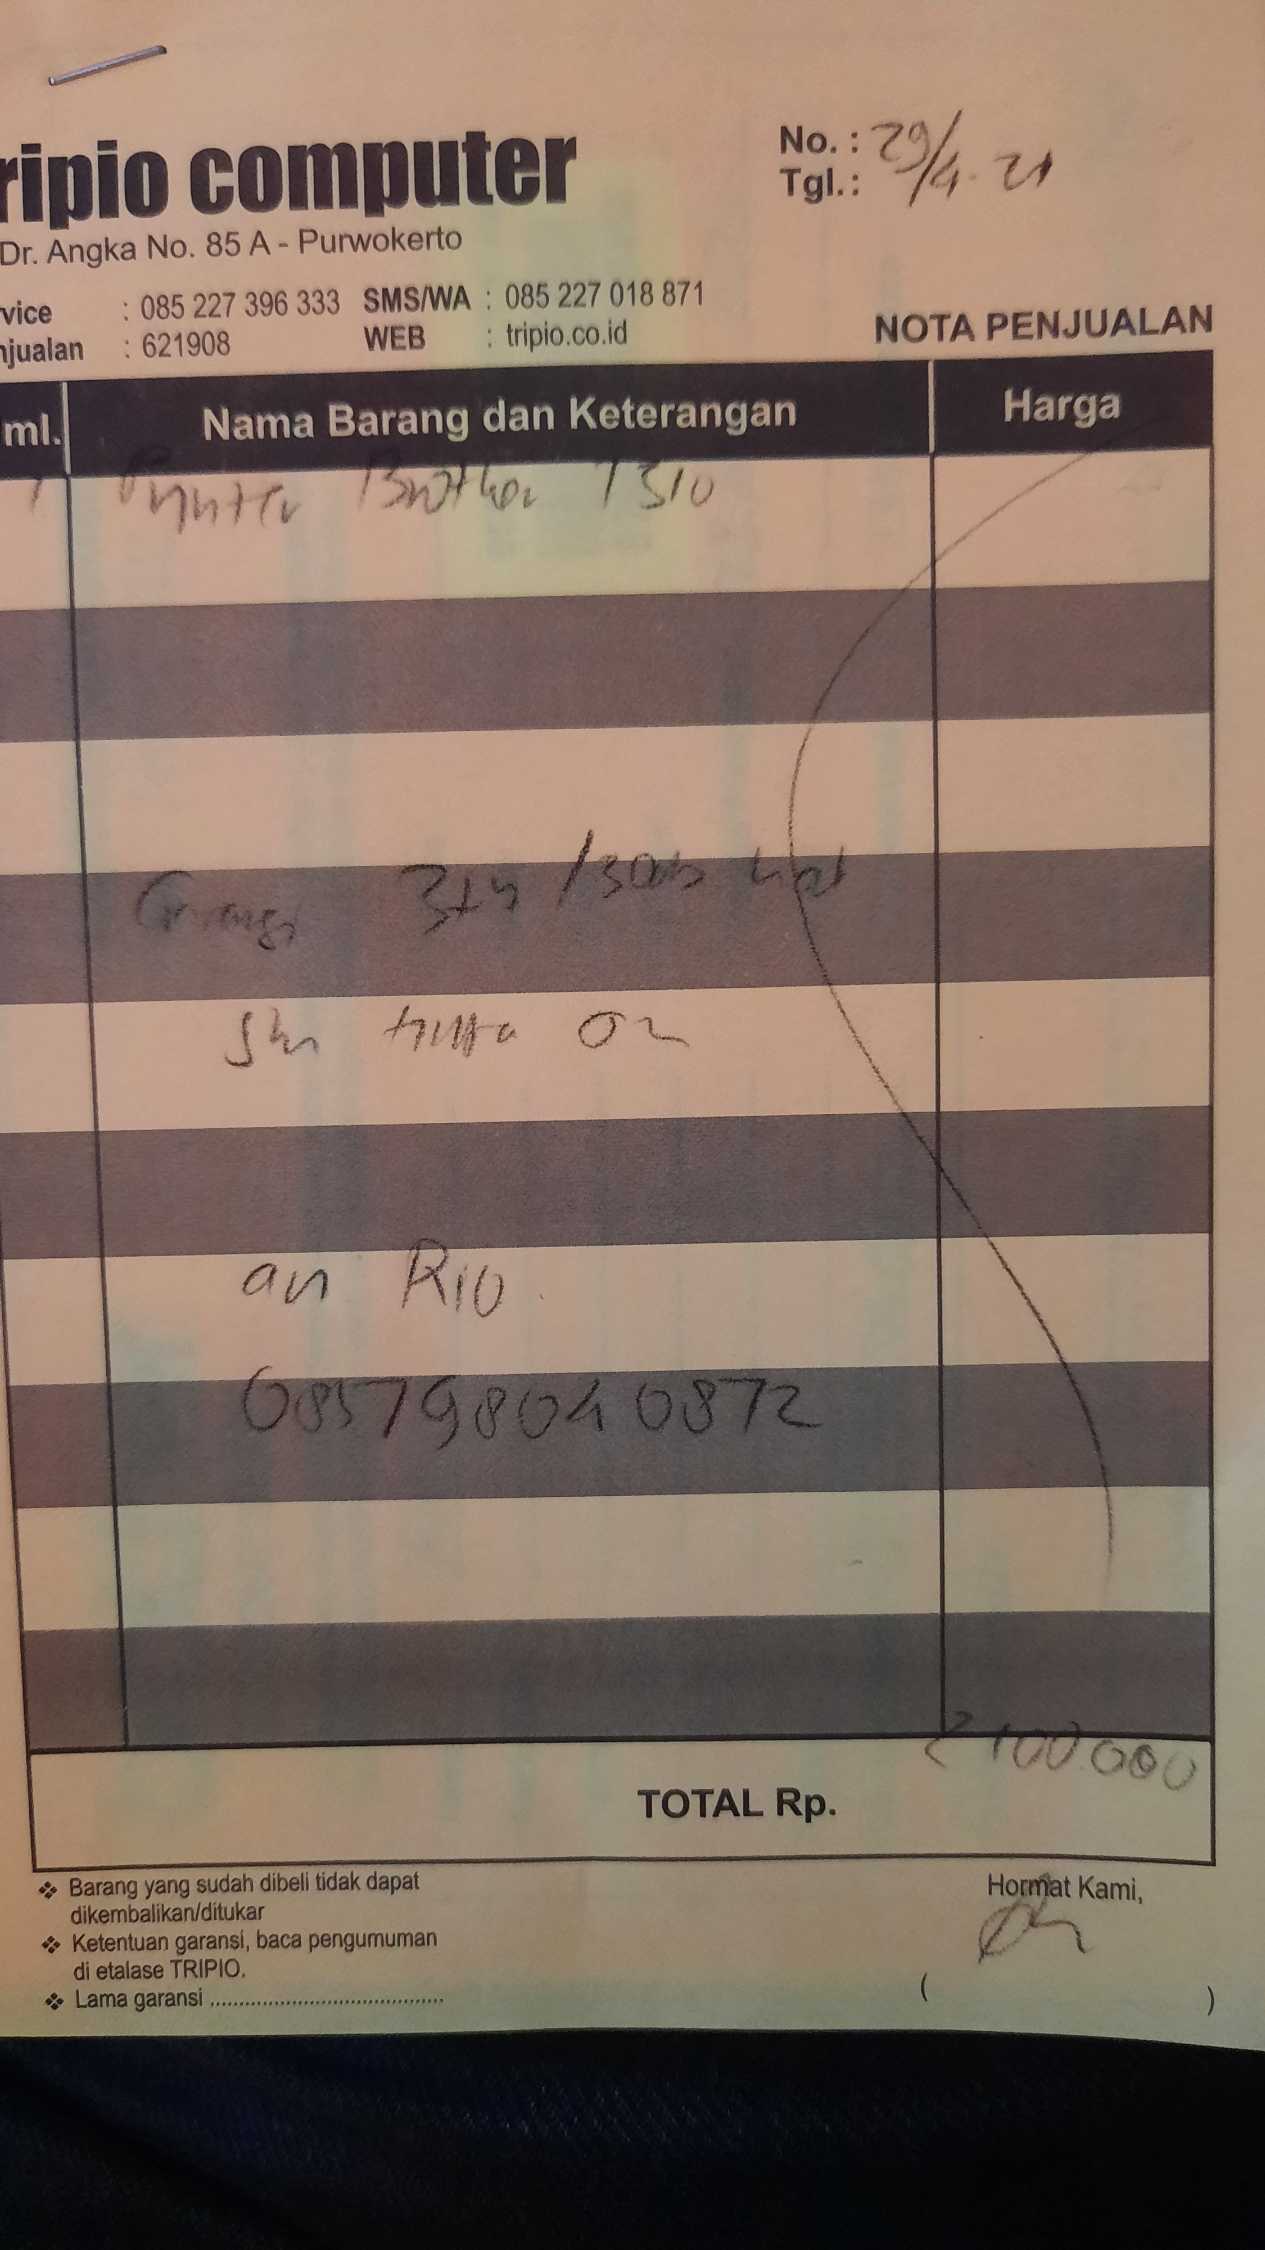 ripio computer
No. : 29/4-21
Tgl. :
Dr. Angka No. 85 A - Purwokerto
rvice : 085 227 396 333 SMS/WA : 085 227 018 871
njualan : 621908 WEB : tripio.co.id
NOTA PENJUALAN
ml. Nama Barang dan Keterangan Harga
1 Printer Brother T310
3th /
an Rio
085798040872
2 100.000
TOTAL Rp.
❖ Barang yang sudah dibeli tidak dapat
dikembalikan/ditukar
❖ Ketentuan garansi, baca pengumuman
di etalase TRIPIO.
❖ Lama garansi ..........................................
Hormat Kami,
( )